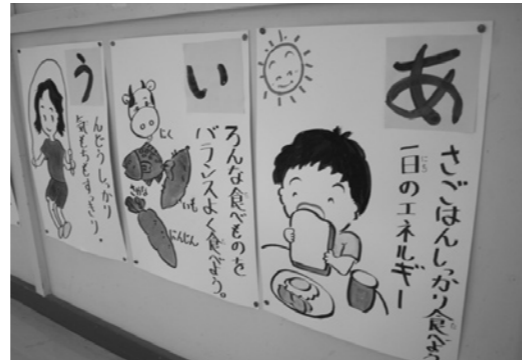 あ
さごはんしっかり食べよ
一日のエネルギー
にち
い
ろんな食べものを
バランスよく食べよう。
にく
いも
にんじん
う
んどうしっかり
気もちもすっきり。